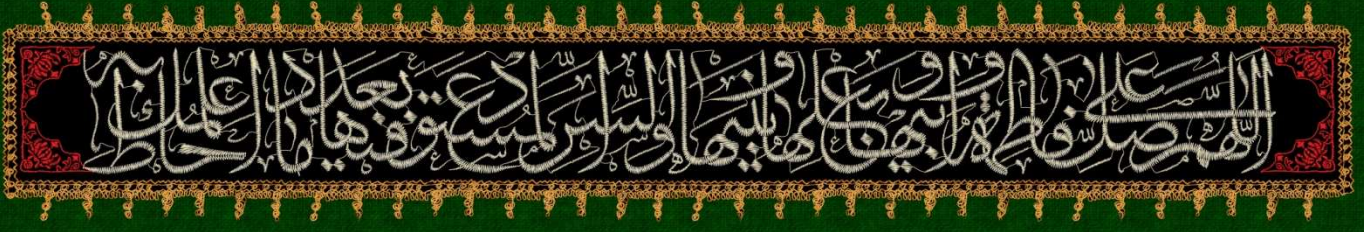 اللهم صل علی فاطمة و ابیها و بعلها و بنیها و السر المستودع فیها بعدد ما احاط به علمک